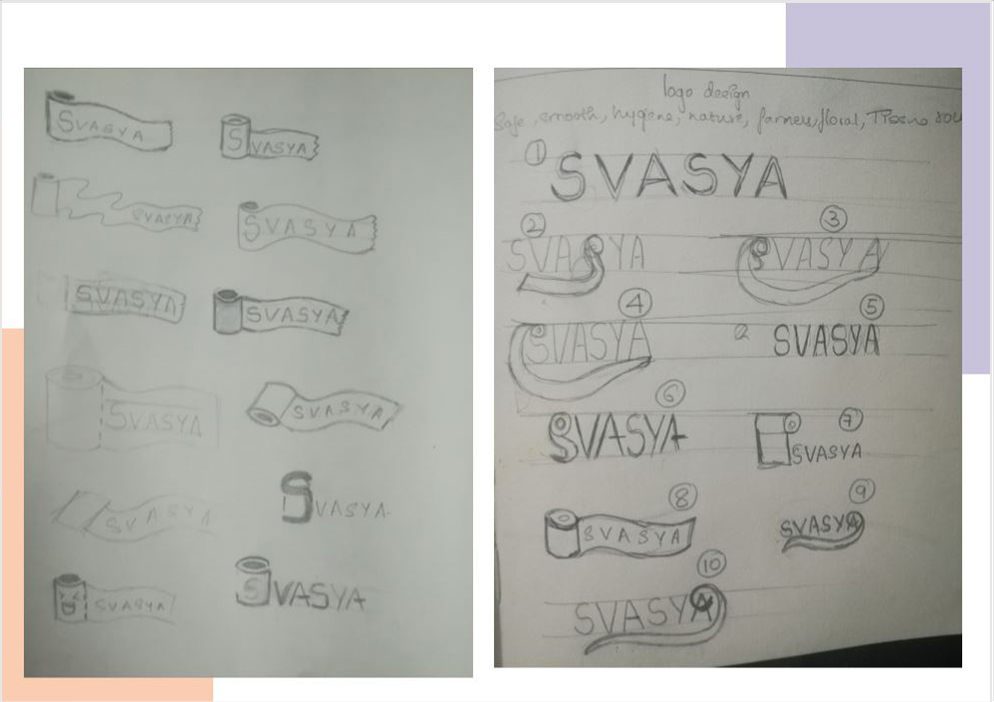 SVASYA
SVASYA
SVASYA
SVASYA
SVASYA
SVASYA
SVASYA
SVASYA
SVASYA
SVASYA
SVASYA
SVASYA
logo design
Safe, smooth, hygiene, nature, floral,
1 SVASYA
2 SVASYA
3 SVASYA
4 SVASYA
5 SVASYA
6 SVASYA
7 SVASYA
8 SVASYA
9 SVASYA
10 SVASYA